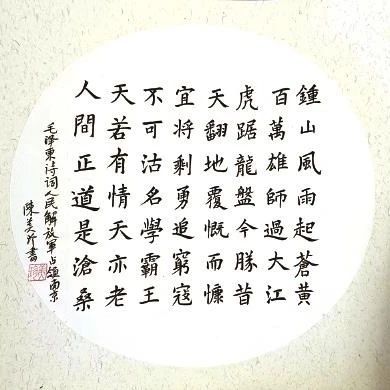 鍾山風雨起蒼黃
百萬雄師過大江
虎踞龍盤今勝昔
天翻地覆慨而慷
宜將剩勇追窮寇
不可沽名學霸王
天若有情天亦老
人間正道是滄桑
毛泽東诗词人民解放軍占領南京
陳美書